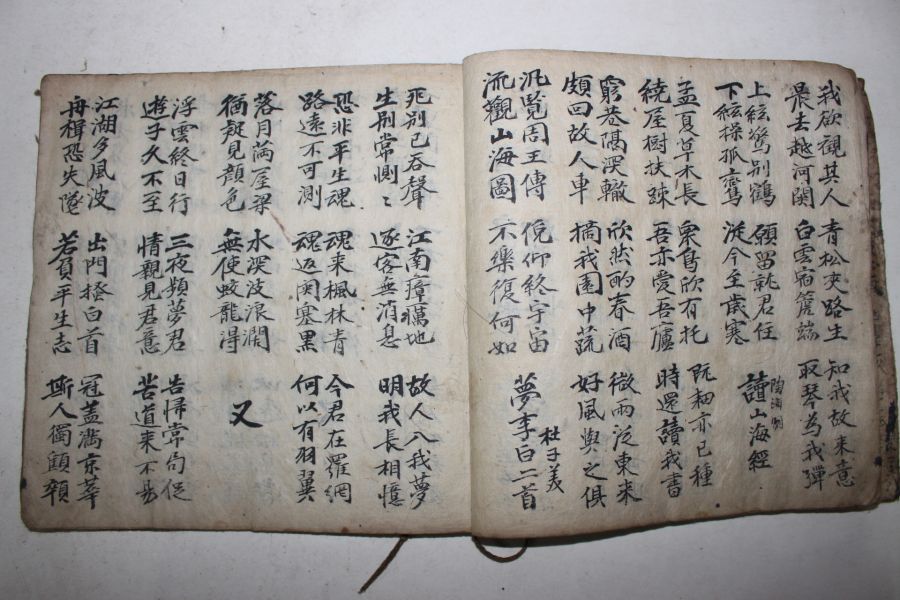 我欲觀其人
晨去越河関
青松夾路生
白雲宿簷端
知我故来意
取琴為我彈
上絃驚別鶴
下絃操孤鸞
願留就君住
從今至歲寒
讀山海經
陶淵明
孟夏草木長
繞屋樹扶疎
衆鳥欣有托
吾亦愛吾廬
既耕亦已種
時還讀我書
窮巷隔深轍
頗回故人車
欣然酌春酒
摘我園中蔬
微雨從東来
好風與之俱
汎覧周王傳
流觀山海圖
俛仰終宇宙
不樂復何如
夢李白二首
杜子美
死別已吞聲
生別常惻〻
江南瘴癘地
逐客無消息
故人入我夢
明我長相憶
恐非平生魂
路遠不可測
魂来楓林青
魂返関塞黒
今君在羅網
何以有羽翼
落月滿屋梁
猶疑見顔色
水深波浪濶
無使蛟龍得
又
浮雲終日行
遊子久不至
三夜頻夢君
情親見君意
告歸常局促
苦道来不易
江湖多風波
舟楫恐失墜
出門搔白首
若負平生志
冠盖滿京華
斯人獨顦